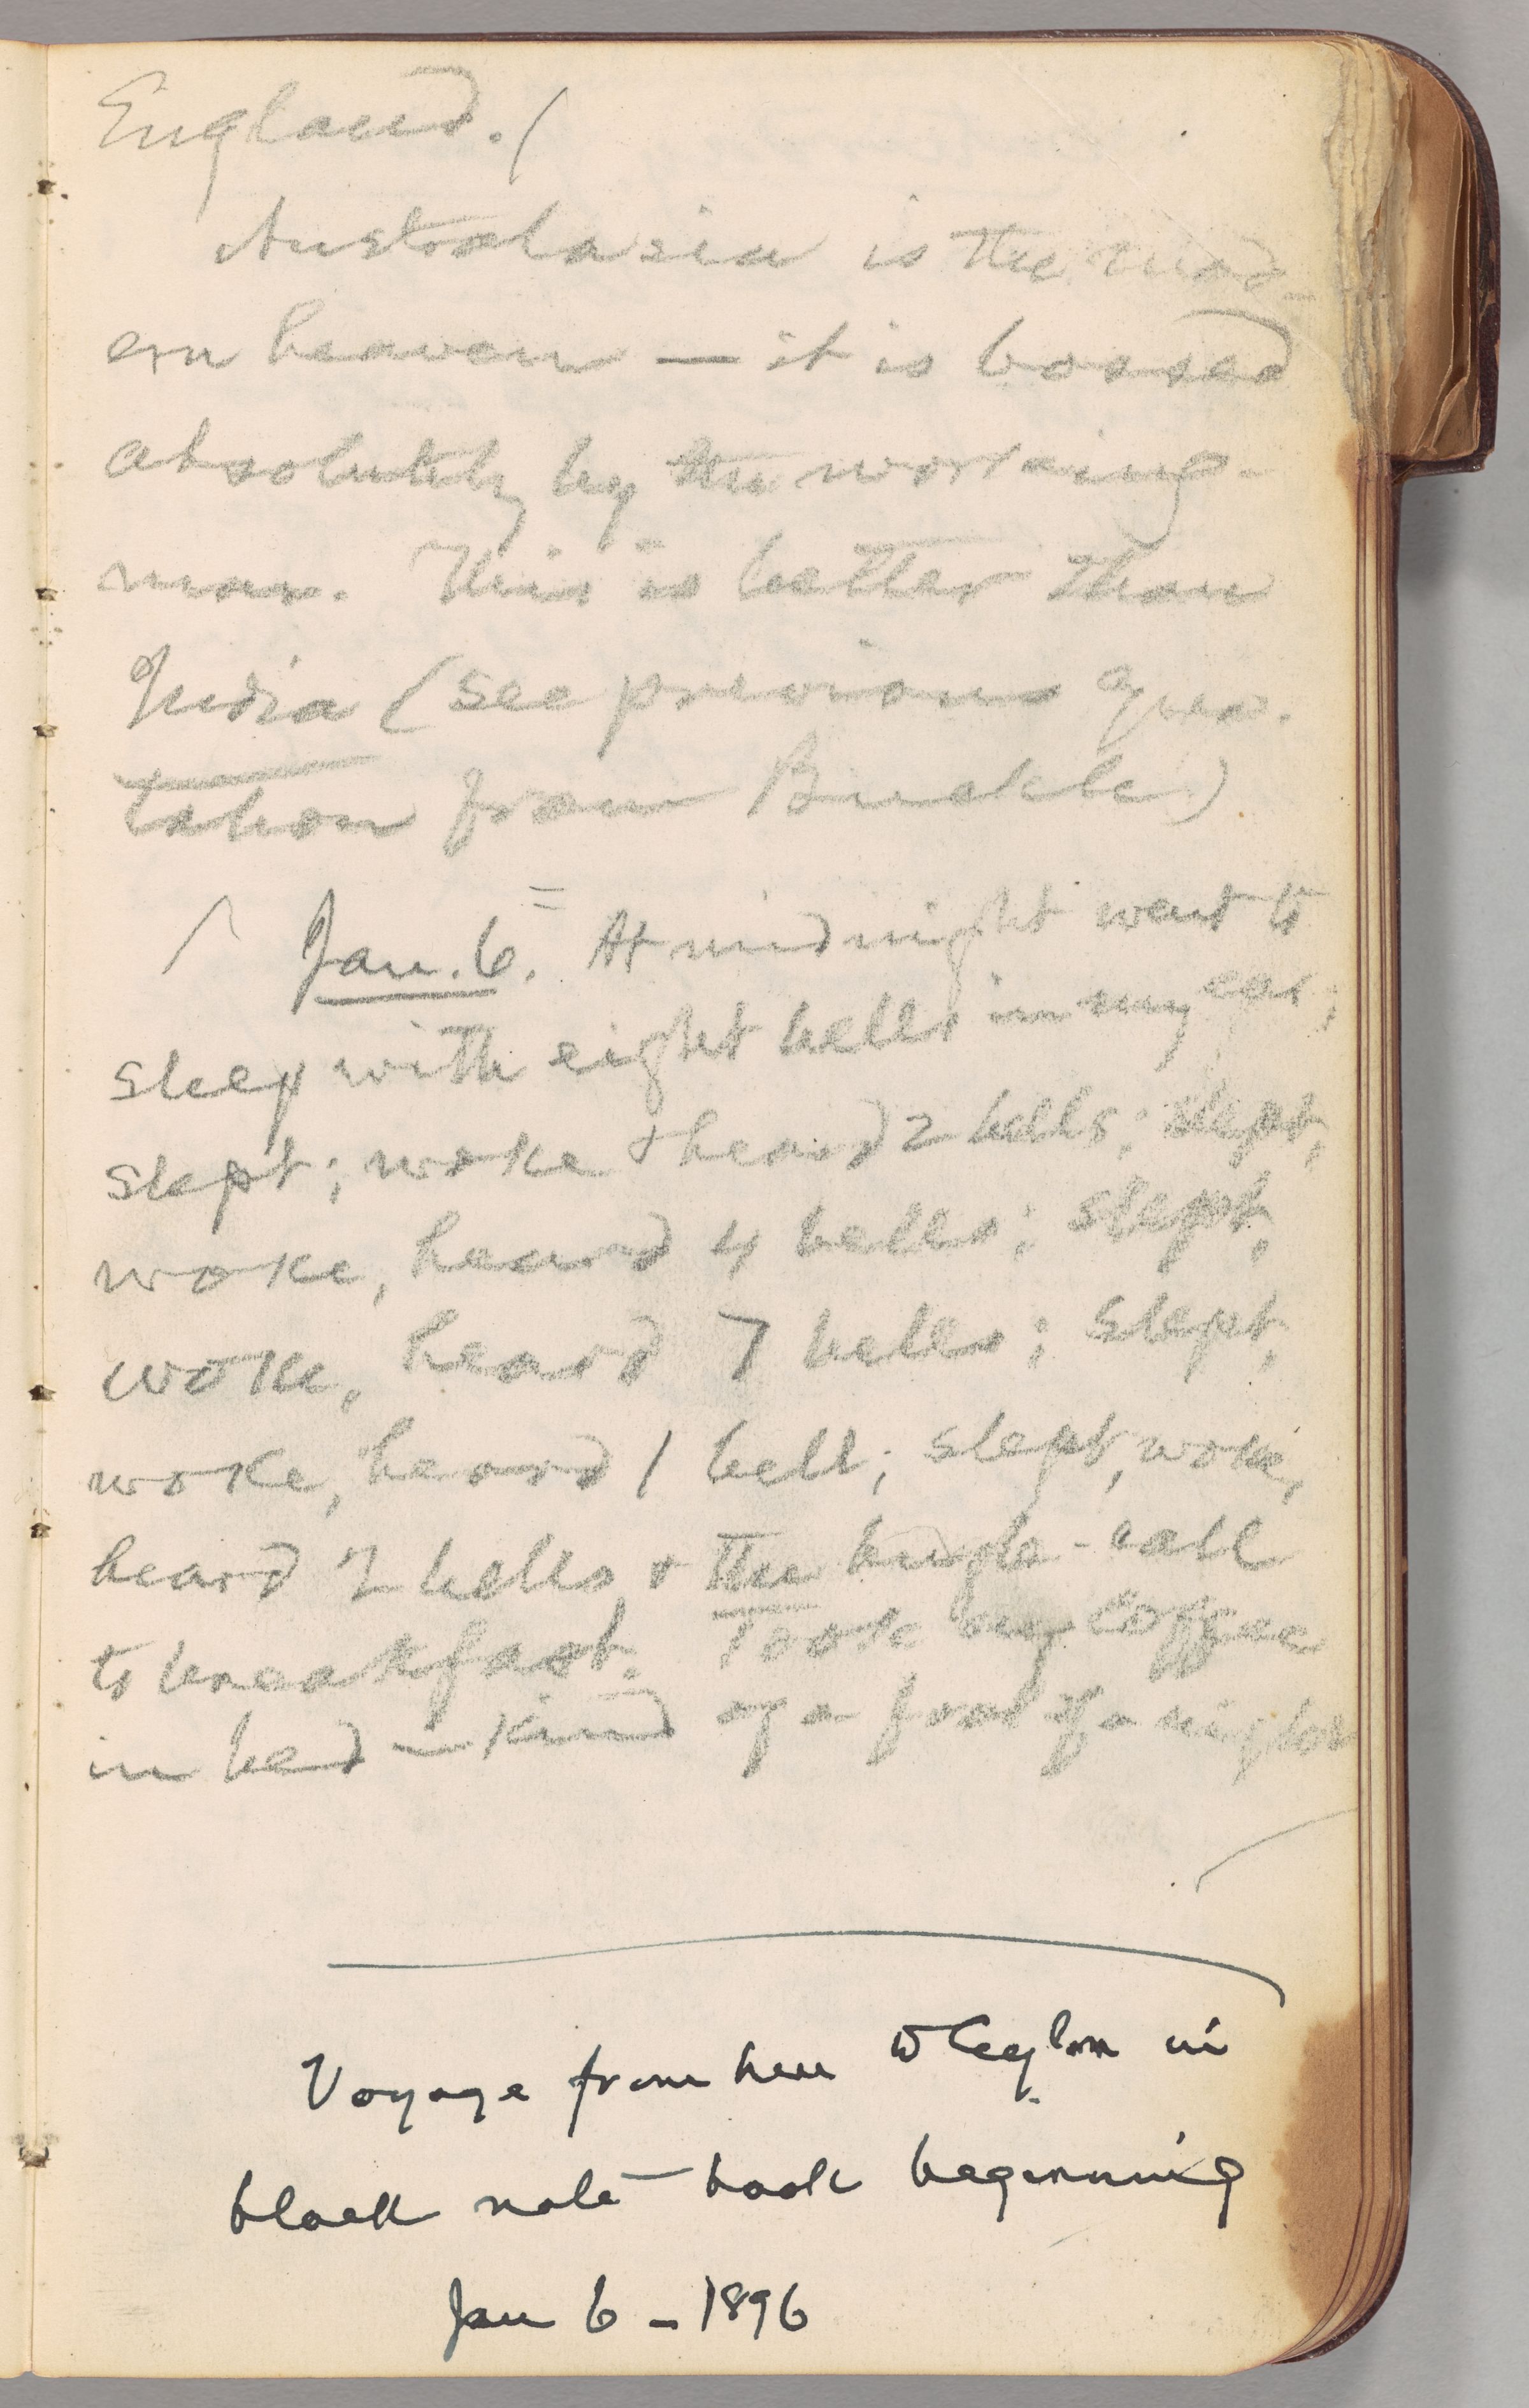 England.
Australasia is the mod-
ern heaven — it is bossed
absolutely by the working-
man. This is better than
India (see previous quo-
tation from Buckle)
Jan. 6. At midnight went to
sleep with eight bells in my ear;
slept; woke & heard 2 bells; slept,
woke, heard 4 bells; slept,
woke, heard 7 bells; slept,
woke, heard 1 bell; slept, woke,
heard 2 bells, & the bugle-call
to breakfast. Took my coffee
in bed — kind of a fool of a night
Voyage from here to Ceylon in
black note-book beginning
Jan 6 – 1896